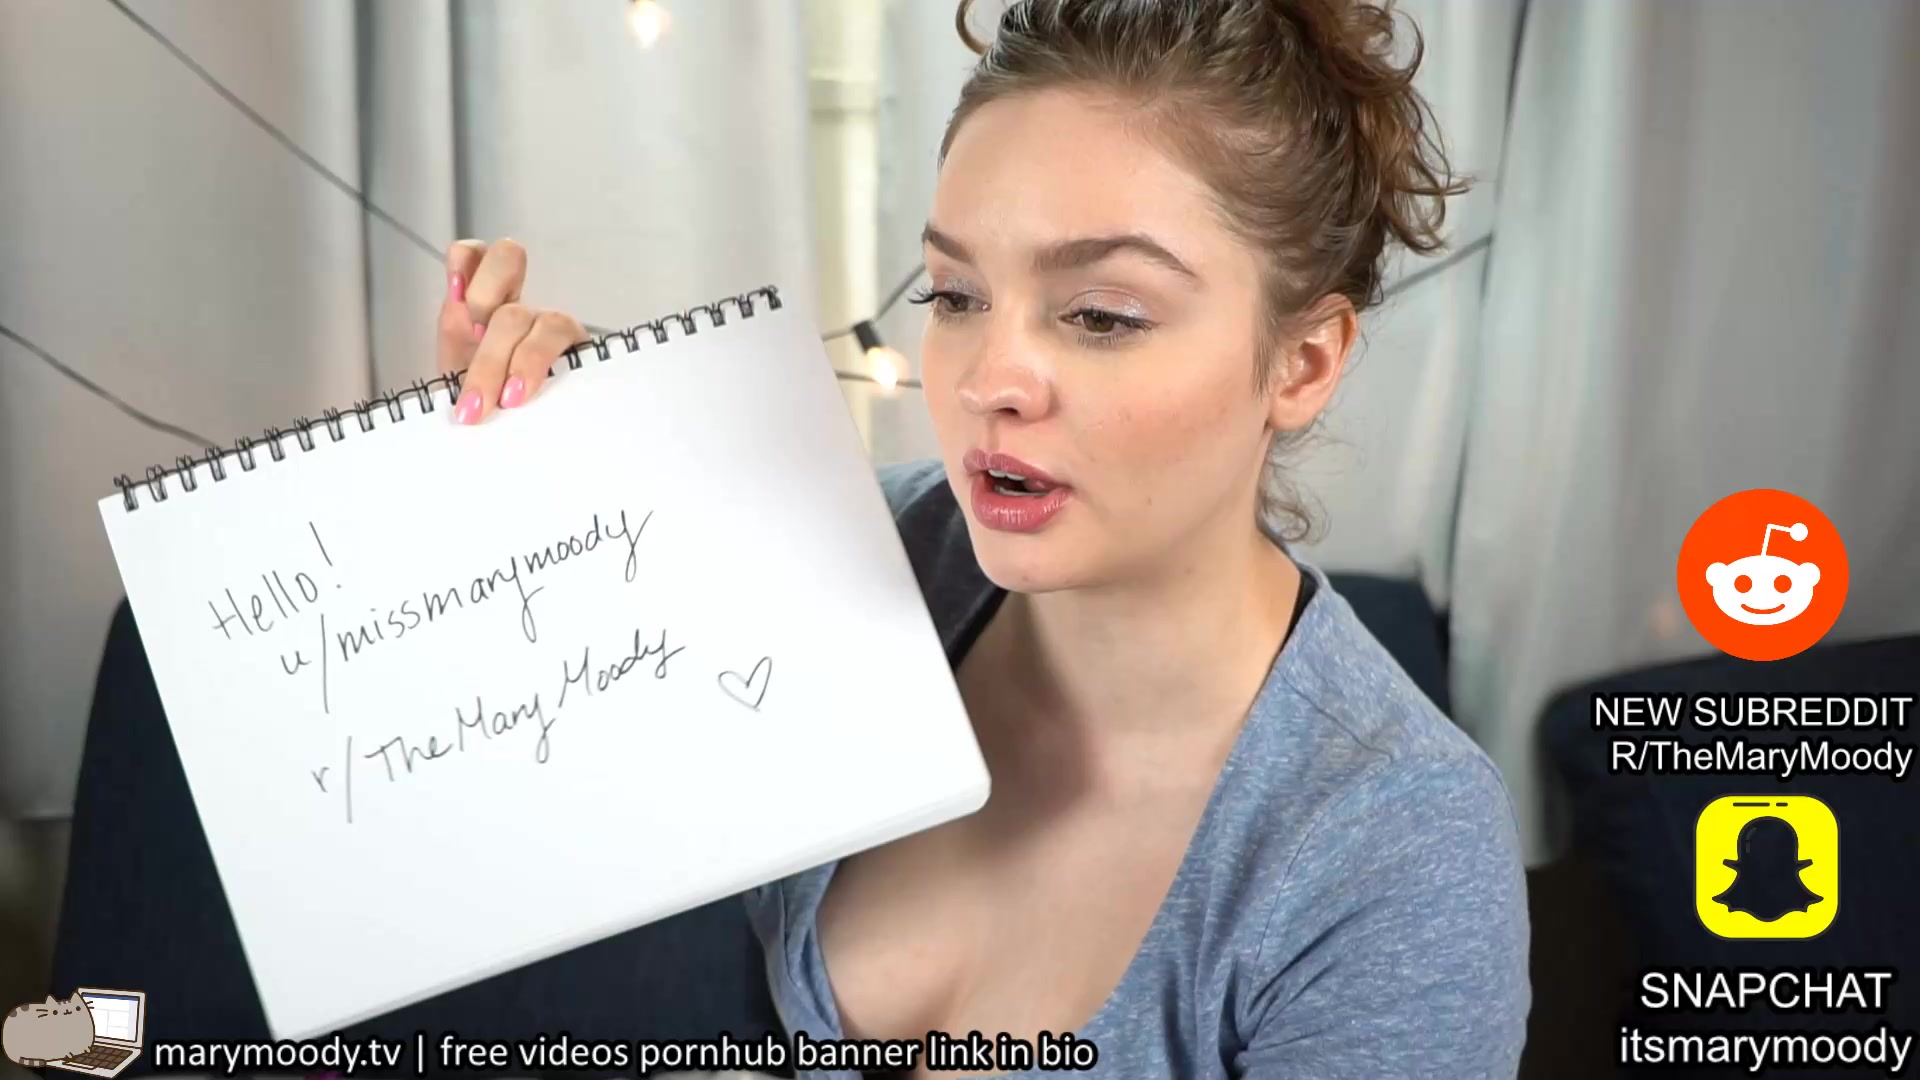 Hello!
u/missmarymoody
r/TheMaryMoody
NEW SUBREDDIT
R/TheMaryMoody
SNAPCHAT
itsmarymoody
marymoody.tv | free videos pornhub banner link in bio